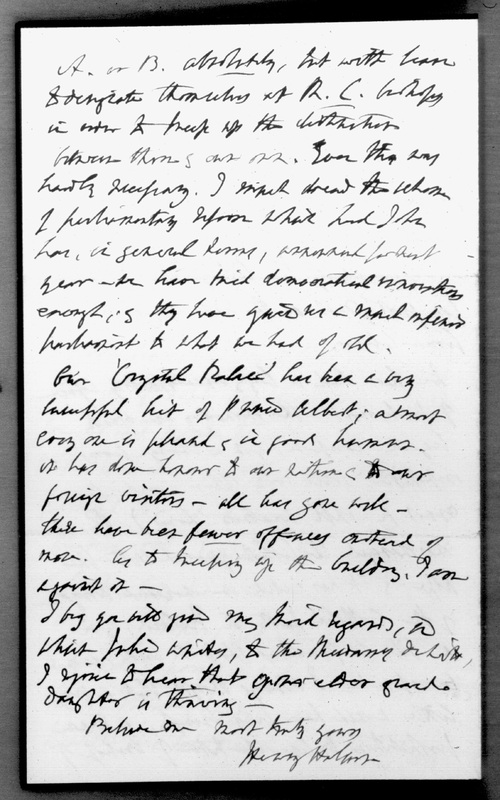 A. or B. absolutely, but with leave
to designate themselves as R. C. bishops
in order to keep up the distinction
between them & our own. Even this was
hardly necessary. I much dread the scheme
of parliamentary reform which Lord John
has, in general terms, announced for next
year – we have tried democratical innovations
enough, & they have given us a much inferior
parliament to what we had of old.
Our 'Crystal Palace' has been a very
successful hit of Prince Albert; almost
every one is pleased & in good humour.
it has done honour to our nation & to our
foreign visitors – all has gone well –
there have been fewer offences instead of
more. As to keeping up the building, I am
against it –
I beg you will give my kind regards, in
which John unites, to the
I rejoice to hear that your elder grand-
daughter is thriving –
Believe me most truly yours
Henry